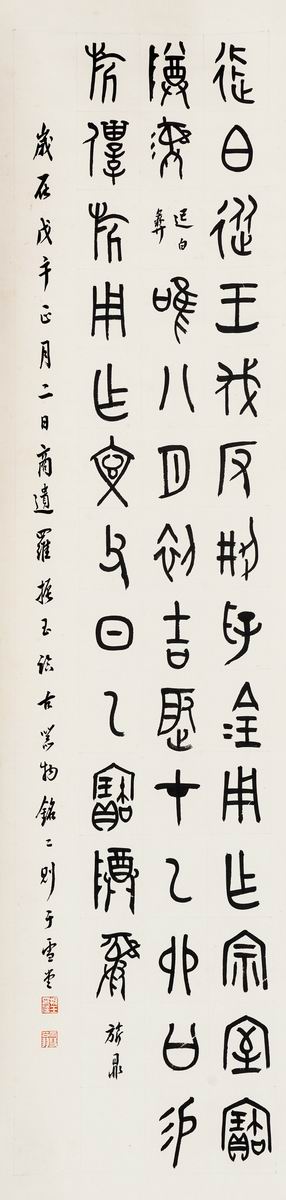 過白從王伐反荊孚金用乍宗室寶
尊彝 過白彝 唯八月初吉辰才乙卯公易
旂僕旂用乍文父日乙寶尊彝 旂鼎
歲在戊午正月二日商遺羅振玉臨古器物銘二則于雪堂